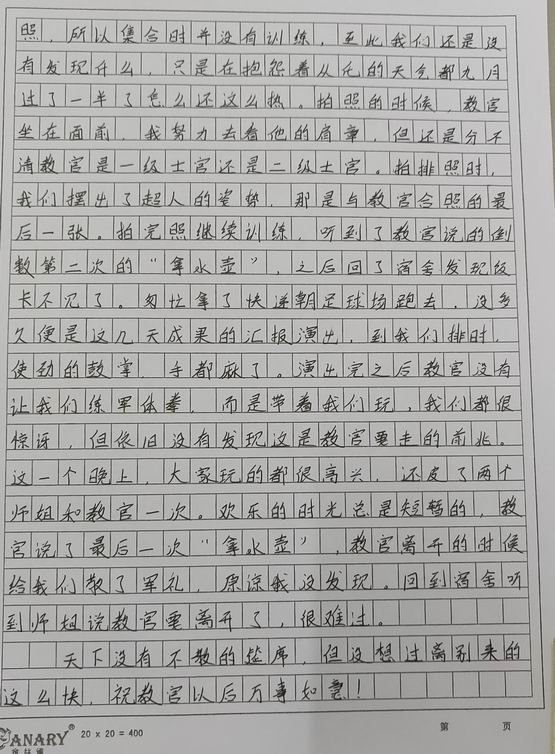 照，所以集合时并没有训练，至此我们还是没
有发现什么，只是在抱怨着从化的天气都九月
过了一半了怎么还这么热。拍照的时候，教官
坐在面前，我努力去看他的肩章，但还是分不
清教官是一级士官还是二级士官。拍排照时，
我们摆出了超人的姿势，那是与教官合照的最
后一张。拍完照继续训练，听到了教官说的倒
数第二次的“拿水壶”，之后回了宿舍发现饭
卡不见了。匆忙拿了快递朝足球场跑去，没多
久便是这几天成果的汇报演出，到我们排时，
使劲的鼓掌，手都麻了。演出完之后教官没有
让我们练军体拳，而是带着我们玩，我们都很
惊讶，但依旧没有发现这是教官要走的前兆。
这一个晚上，大家玩的都很高兴，还皮了两个
师姐和教官一次。欢乐的时光总是短暂的，教
官说了最后一次“拿水壶”，教官离开的时候
给我们敬了军礼，原谅我没发现。回到宿舍听
到师姐说教官要离开了，很难过。
天下没有不散的筵席，但没想过离别来的
这么快，祝教官以后万事如意！
CANARY® 20 x 20 = 400 第 页